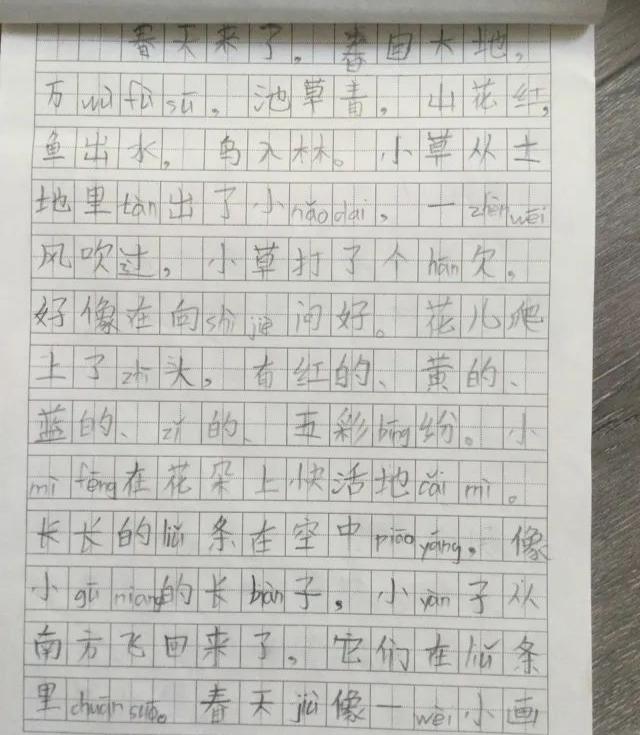 春天来了。春回大地，
万wù fù sū。池草青，山花红，
鱼出水，鸟入林。小草从土
地里tàn出了小nǎo dai，一zhèn wēi
风吹过，小草打了个hān欠，
好像在向shì jiè问好。花儿爬
上了zhī头，有红的、黄的、
蓝的、zǐ的、五彩bīng纷。小
mì fēng在花朵上快活地cǎi mì。
长长的liǔ条在空中piāo yáng，像
小gū niang的长biàn子，小yàn子从
南方飞回来了，它们在liǔ条
里chuān suō。春天jiù像一wèi小画